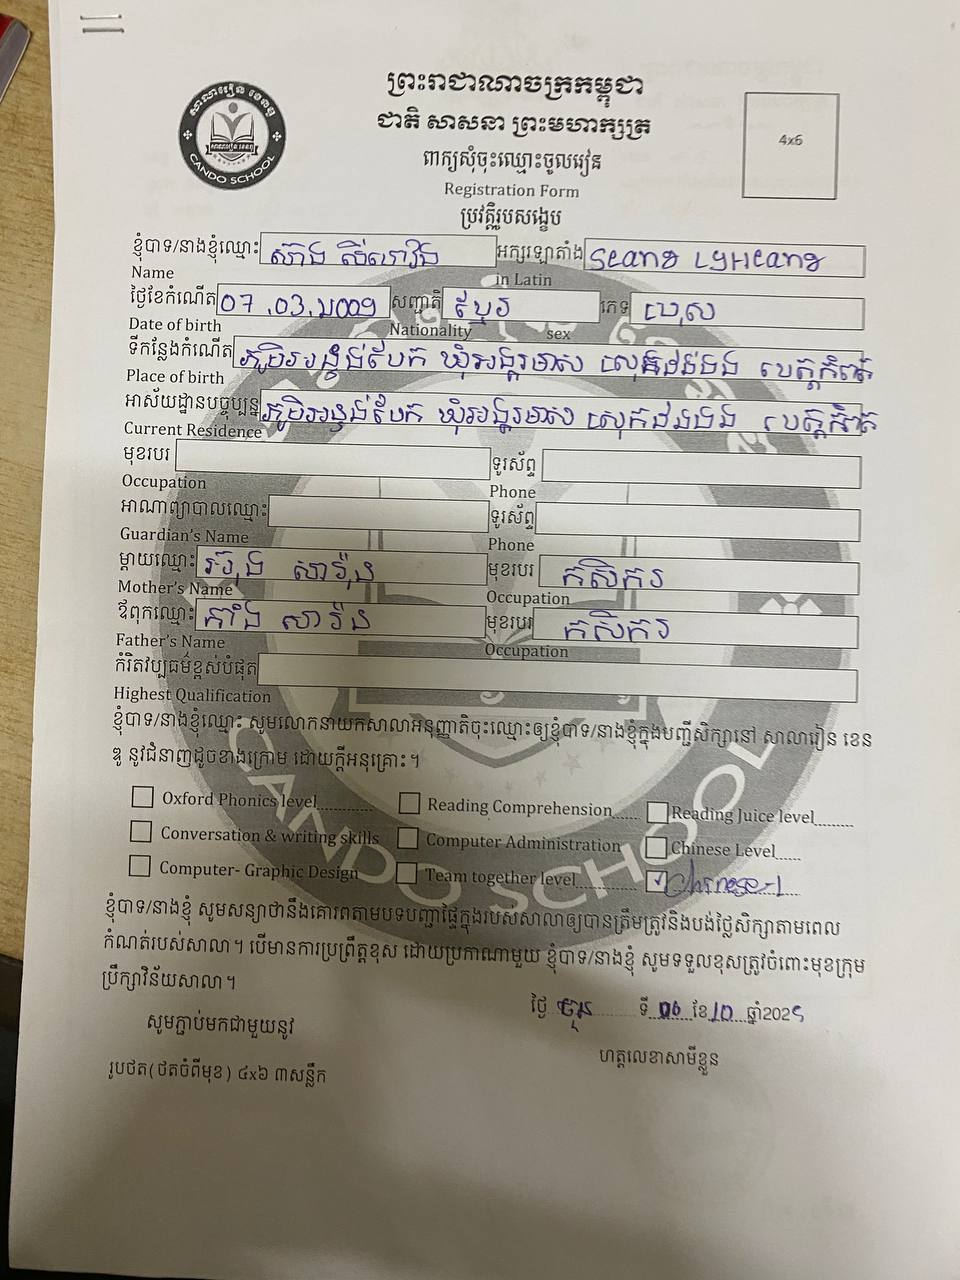 ព្រះរាជាណាចក្រកម្ពុជា
ជាតិ សាសនា ព្រះមហាក្សត្រ
សាលារៀន ខេនឌូ
CANDO SCHOOL
4x6
ពាក្យសុំចុះឈ្មោះចូលរៀន
Registration Form
ប្រវត្តិរូបសង្ខេប
ខ្ញុំបាទ/នាងខ្ញុំឈ្មោះ ស៊ាង លីហៀង អក្សរឡាតាំង Seang LyHeang
Name in Latin
ថ្ងៃខែកំណើត 07.03.2009 សញ្ជាតិ ខ្មែរ ភេទ ប្រុស
Date of birth Nationality sex
ទីកន្លែងកំណើត ភូមិអន្លង់បែក ឃុំអង្គរមាស ស្រុក ខេត្តកំពត
Place of birth
អាស័យដ្ឋានបច្ចុប្បន្ន ភូមិអន្លង់បែក ឃុំអង្គរមាស ស្រុក ខេត្តកំពត
Current Residence
មុខរបរ ទូរស័ព្ទ
Occupation Phone
អាណាព្យាបាលឈ្មោះ ទូរស័ព្ទ
Guardian's Name Phone
ម្តាយឈ្មោះ សារ៉ុន មុខរបរ កសិករ
Mother's Name Occupation
ឪពុកឈ្មោះ សារ៉ន មុខរបរ កសិករ
Father's Name Occupation
កំរិតវប្បធម៌ខ្ពស់បំផុត
Highest Qualification
ខ្ញុំបាទ/នាងខ្ញុំឈ្មោះ សូមលោកនាយកសាលាអនុញ្ញាតិចុះឈ្មោះឲ្យខ្ញុំបាទ/នាងខ្ញុំក្នុងបញ្ជីសិក្សានៅ សាលារៀន ខេន
ឌូ នូវជំនាញដូចខាងក្រោម ដោយក្តីអនុគ្រោះ។
Oxford Phonics level............ Reading Comprehension...... Reading Juice level.........
Conversation & writing skills Computer Administration Chinese Level......
Computer- Graphic Design Team together level............ Chinese-1
ខ្ញុំបាទ/នាងខ្ញុំ សូមសន្យាថានឹងគោរពតាមបទបញ្ជាផ្ទៃក្នុងរបស់សាលាឲ្យបានត្រឹមត្រូវនិងបង់ថ្លៃសិក្សាតាមពេល
កំណត់របស់សាលា។ បើមានការប្រព្រឹត្តខុស ដោយប្រកាណាមួយ ខ្ញុំបាទ/នាងខ្ញុំ សូមទទួលខុសត្រូវចំពោះមុខក្រុម
ប្រឹក្សាវិន័យសាលា។
ថ្ងៃ ចន្ទ ទី 06 ខែ 10 ឆ្នាំ2025
សូមភ្ជាប់មកជាមួយនូវ
ហត្ថលេខាសាមីខ្លួន
រូបថត(ថតចំពីមុខ) ៤x៦ ៣សន្លឹក